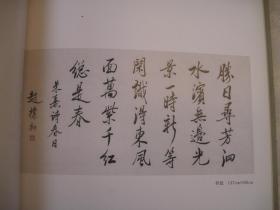 勝日尋芳泗
水濱無邊光
景一時新等
閒識得東風
面萬紫千紅
總是春
朱熹詩春日
趙樸初